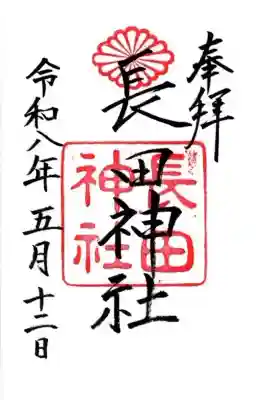 奉拝
長田神社
長田神社
令和八年五月十二日